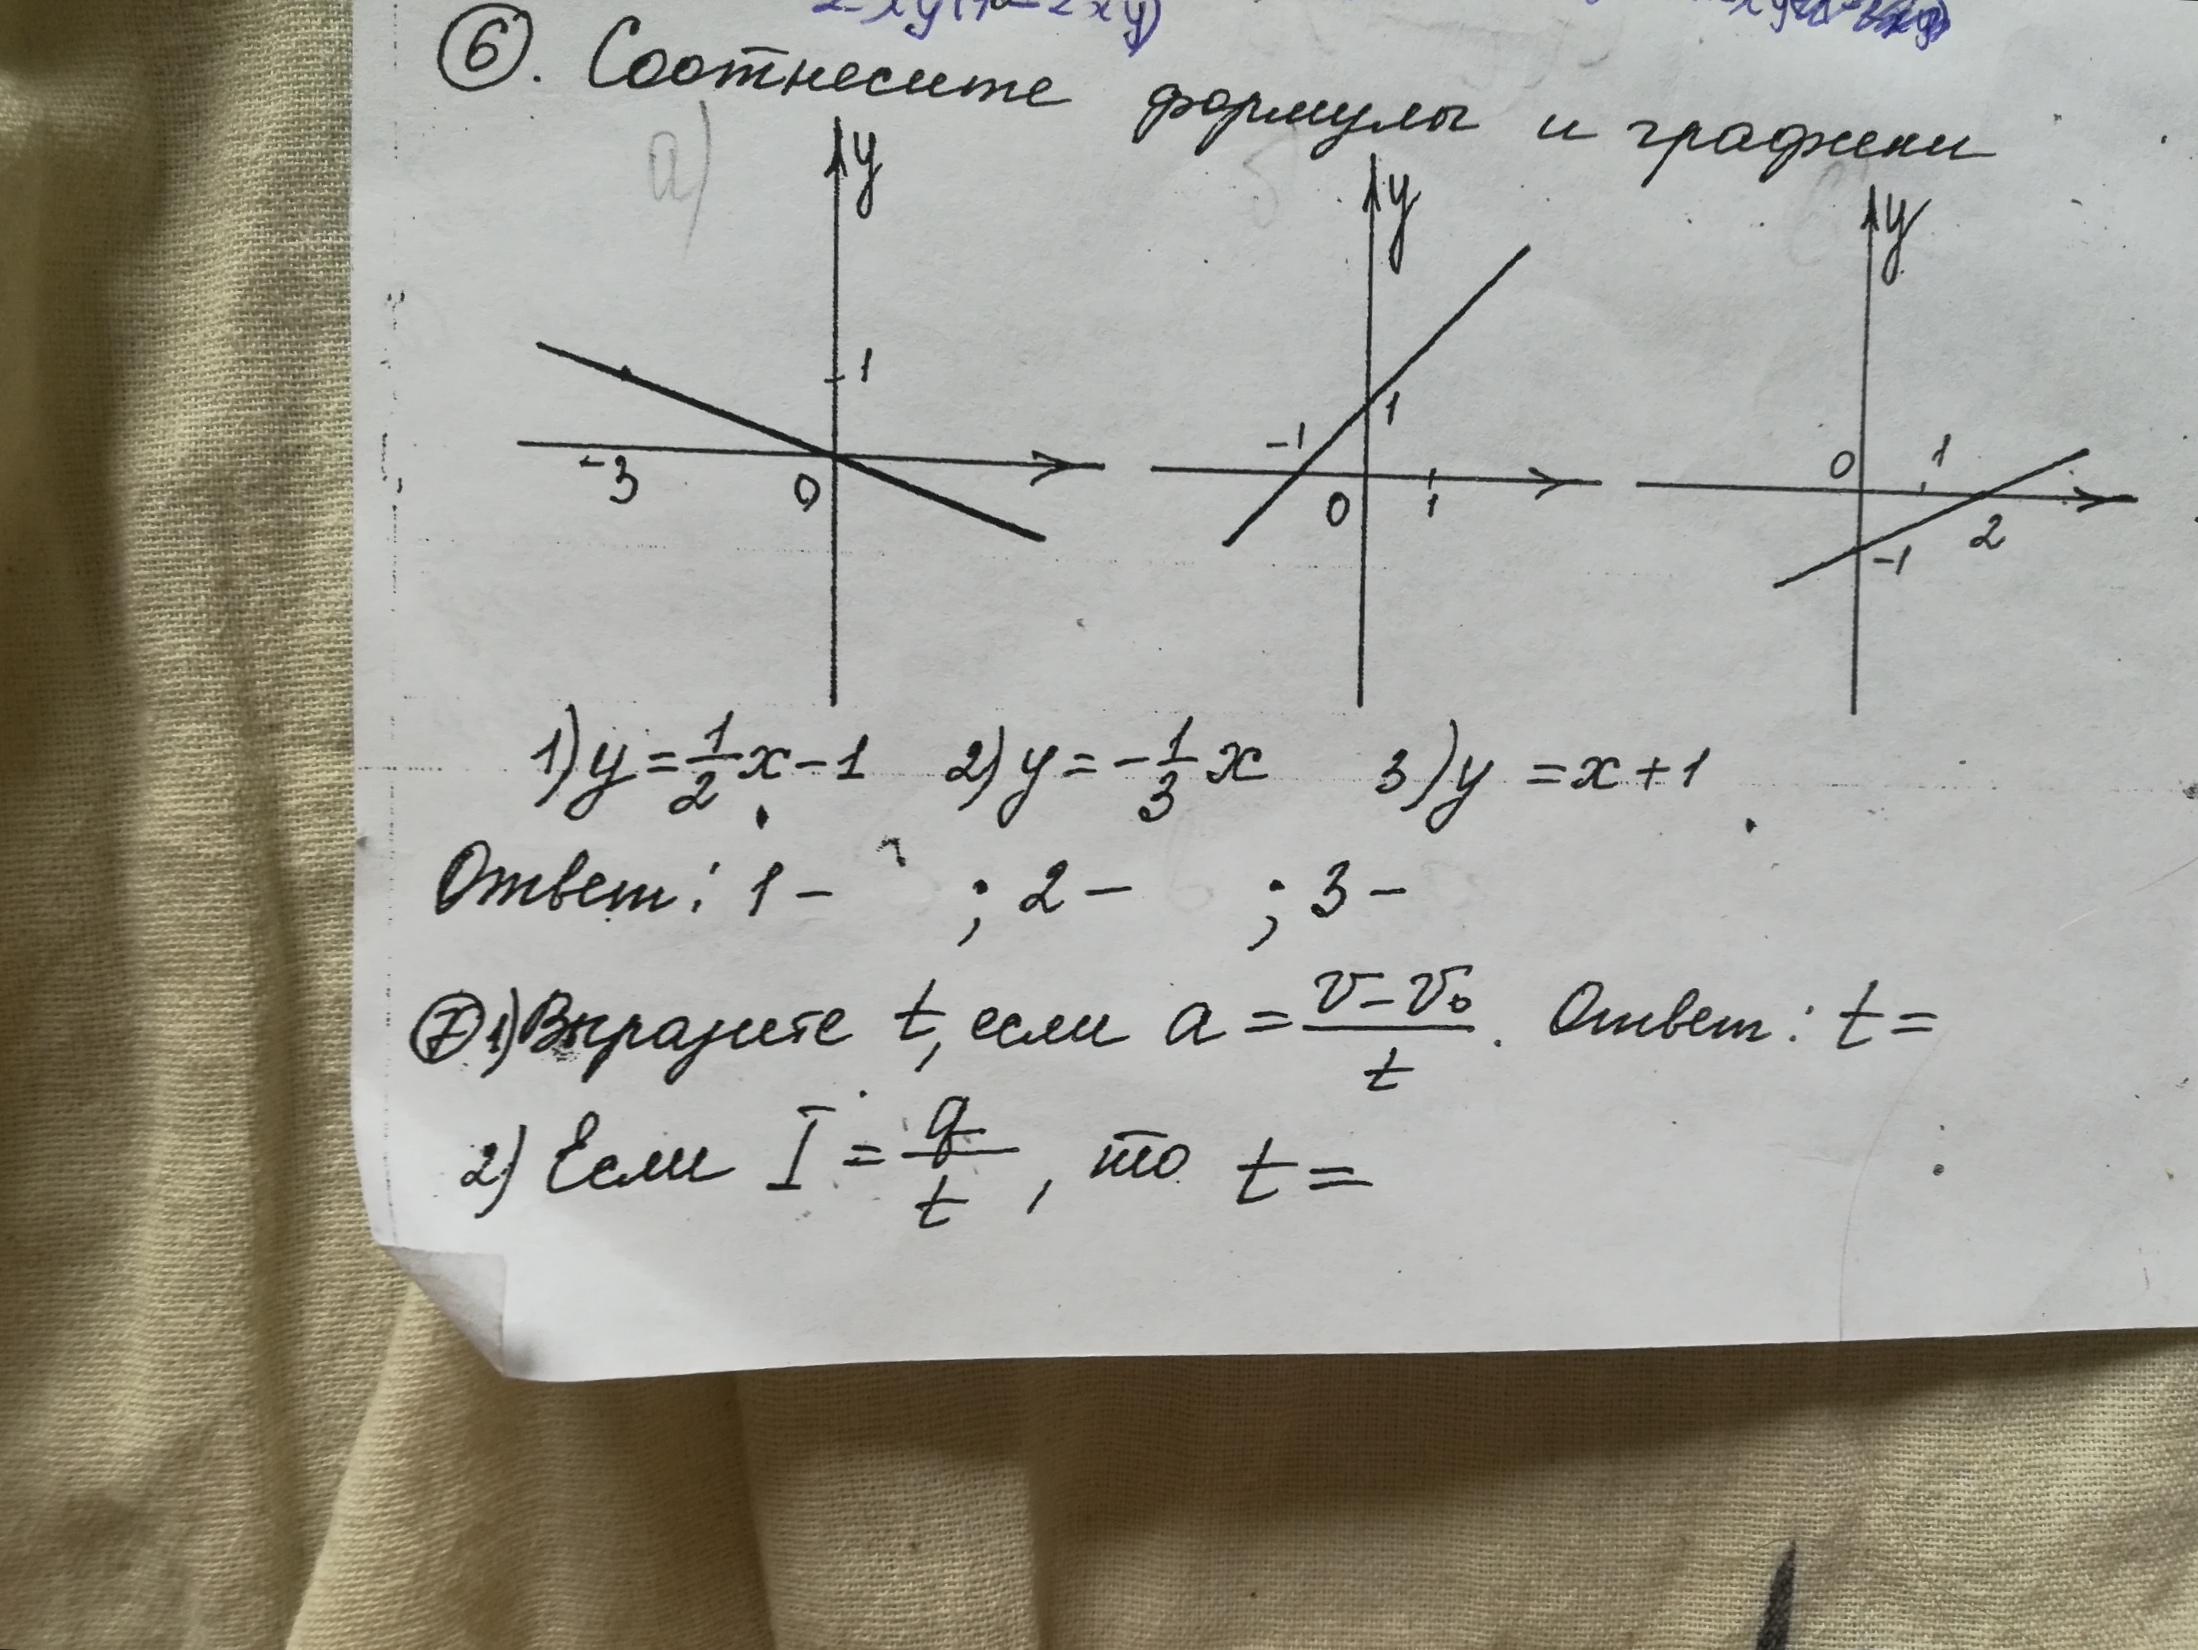 2 xy(7 - 2xy)
6. Соотнесите формулы и графики
а) y б y y
1 -3 0
-1 1 0 1
0 1 2 -1
1) y = 1/2 x - 1 2) y = -1/3 x 3) y = x + 1
Ответ: 1 - ; 2 - ; 3 -
7 1) Выразите t, если a = (v - v₀)/t. Ответ: t =
2) Если I = q/t, то t =